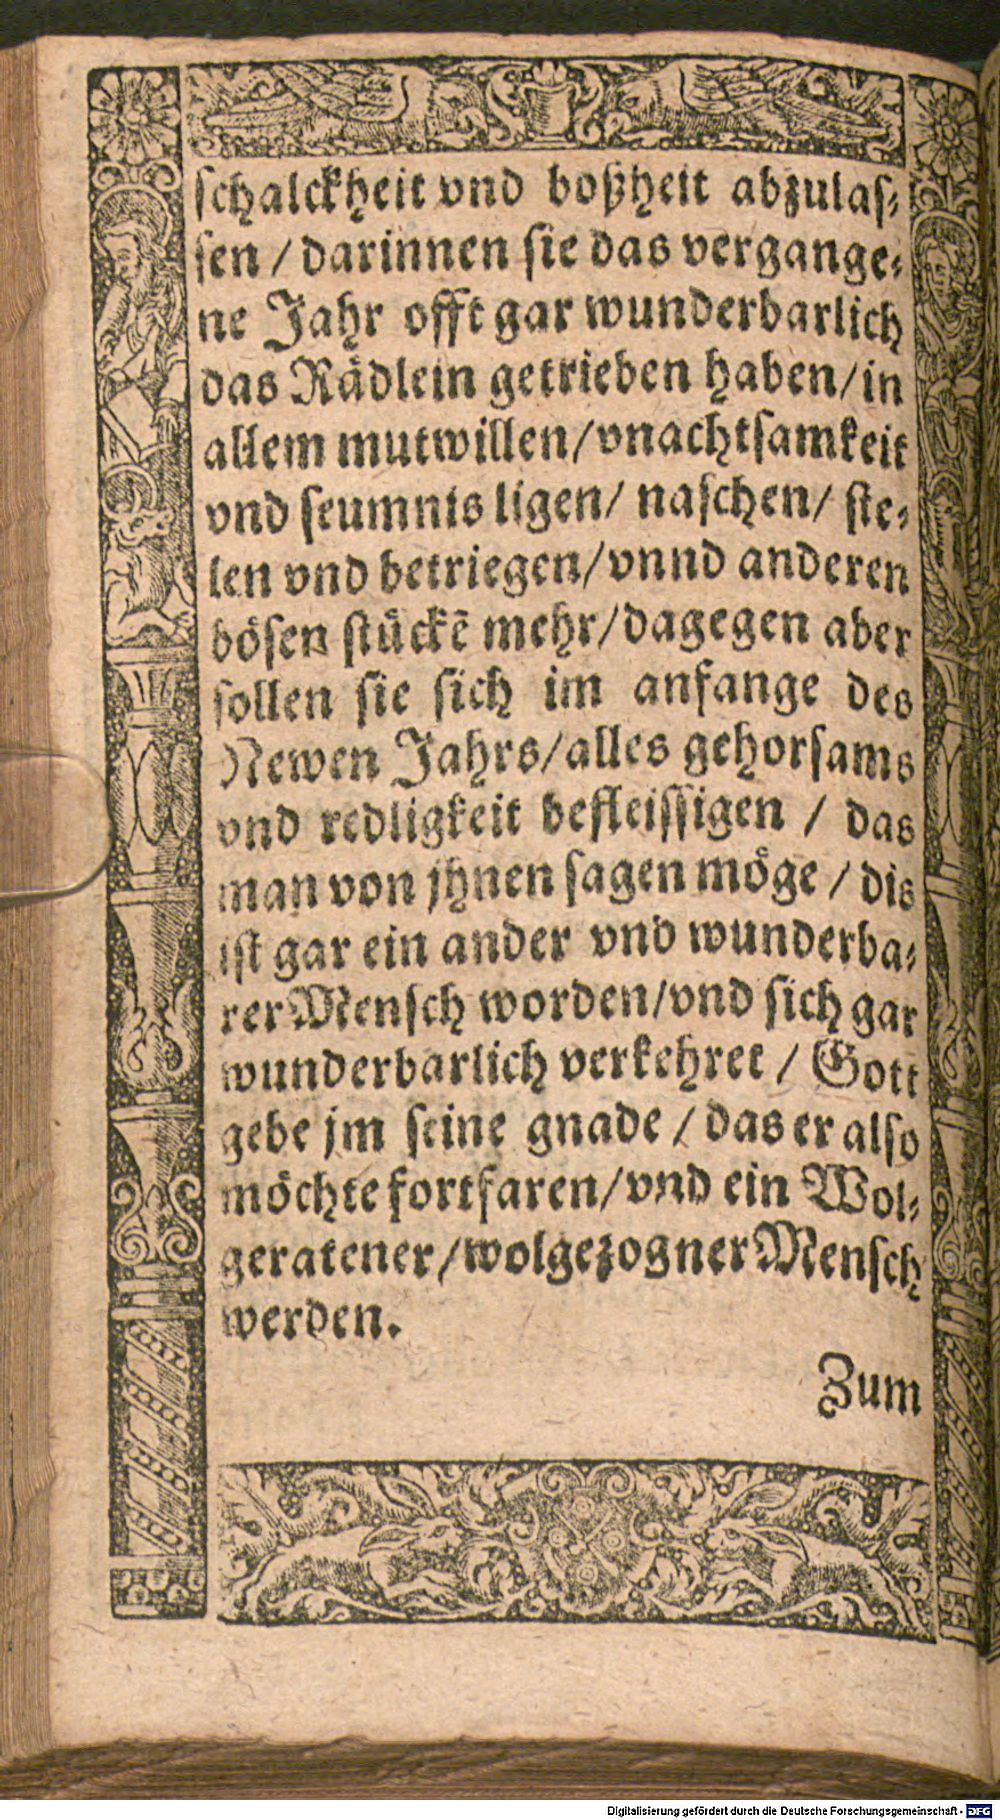 schalckheit vnd boßheit abzulas⸗
sen / darinnen sie das vergange⸗
ne Jahr offt gar wunderbarlich
das Rädlein getrieben haben/in
allem mutwillen/vnachtsamkeit
vnd seumnis ligen/ naschen/ ste⸗
len vnd betriegen/vnnd anderen
bösen stückē mehr/dagegen aber
sollen sie sich im anfange des
Newen Jahrs/alles gehorsams
vnd redligkeit befleissigen / das
man von jhnen sagen möge / dis
ist gar ein ander vnd wunderba⸗
rer Mensch worden/vnd sich gar
wunderbarlich verkehret / Gott
gebe jm seine gnade / das er also
möchte fortfaren/vnd ein Wol⸗
geratener/wolgezogner Mensch
werden.
Zum
Digitalisierung gefördert durch die Deutsche Forschungsgemeinschaft - DFG